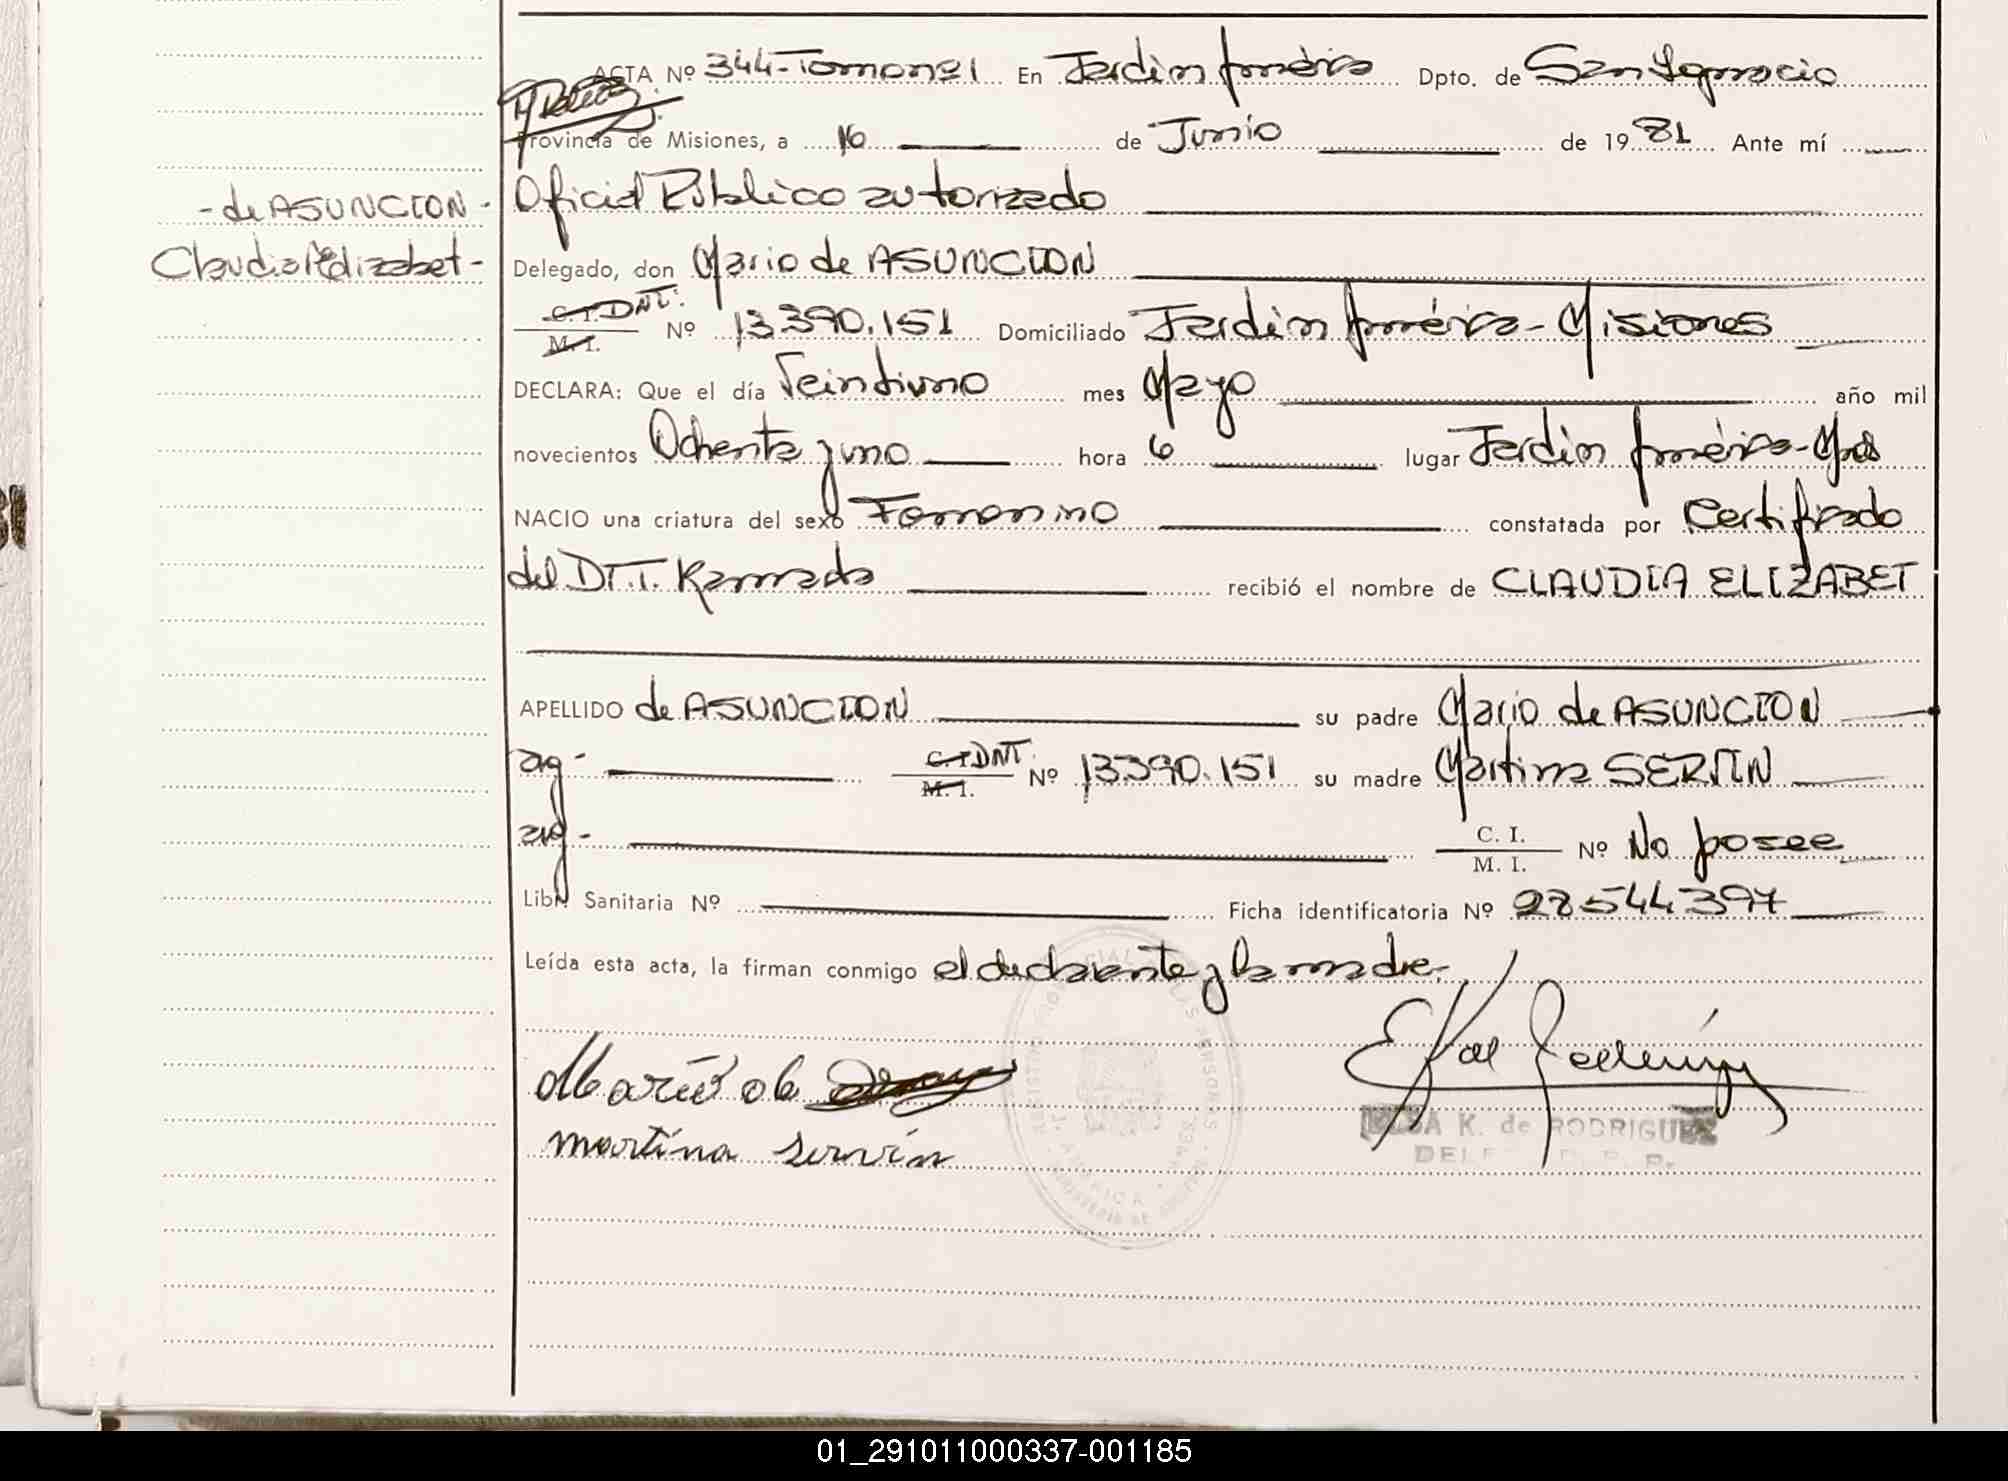 ACTA Nº 344-Tomo nº1 En Jardín América Dpto. de San Ignacio
Provincia de Misiones, a 16 de Junio de 1981 Ante mí
- de ASUNCION - Oficial Público autorizado
Claudia Elizabet - Delegado, don Mario de ASUNCION
C. I. DNI. M. I. Nº 13.390.151 Domiciliado Jardín América - Misiones
DECLARA: Que el día Veintiuno mes Mayo año mil
novecientos Ochenta y uno hora 6 lugar Jardín América - Mnes
NACIO una criatura del sexo Femenino constatada por Certificado
del Dr. T. Kamada recibió el nombre de CLAUDIA ELIZABET
APELLIDO de ASUNCION su padre Mario de ASUNCION
arg- C. I. DNI. M. I. Nº 13.390.151 su madre Martina SERVIN
arg- C. I. M. I. Nº No posee
Libr. Sanitaria Nº Ficha identificatoria Nº 28544397
Leída esta acta, la firman conmigo el declarante y la madre.
Mario de
martina servin
K. de RODRIGUEZ
01_291011000337-001185